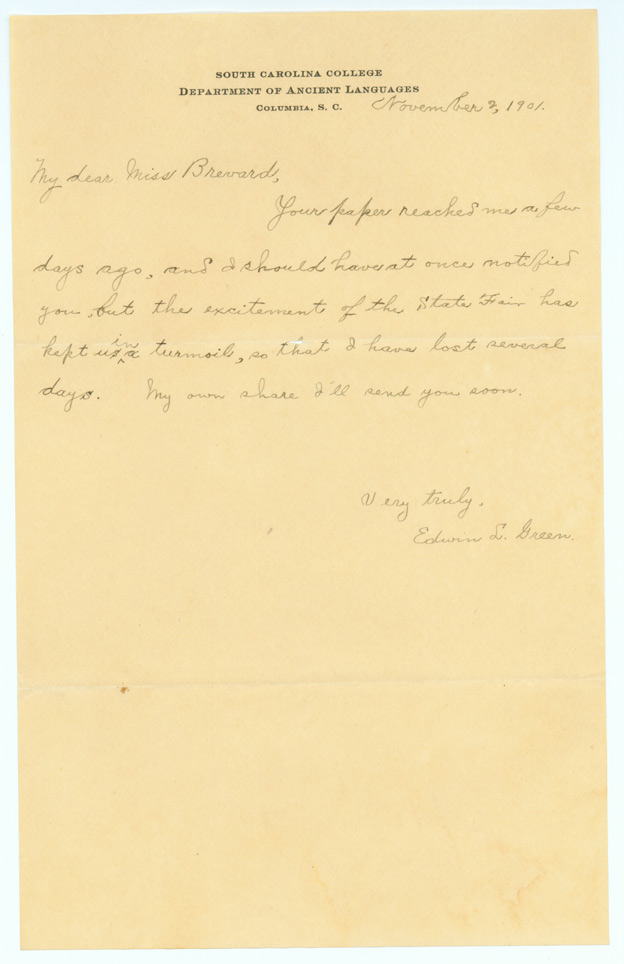 SOUTH CAROLINA COLLEGE
DEPARTMENT OF ANCIENT LANGUAGES
COLUMBIA, S. C.
November 2, 1901.
My dear Miss Brevard,
Your paper reached me a few
days ago, and I should have at once notified
you, but the excitement of the State Fair has
kept us in a turmoil, so that I have lost several
days. My own share I'll send you soon.
Very truly,
Edwin L. Green.